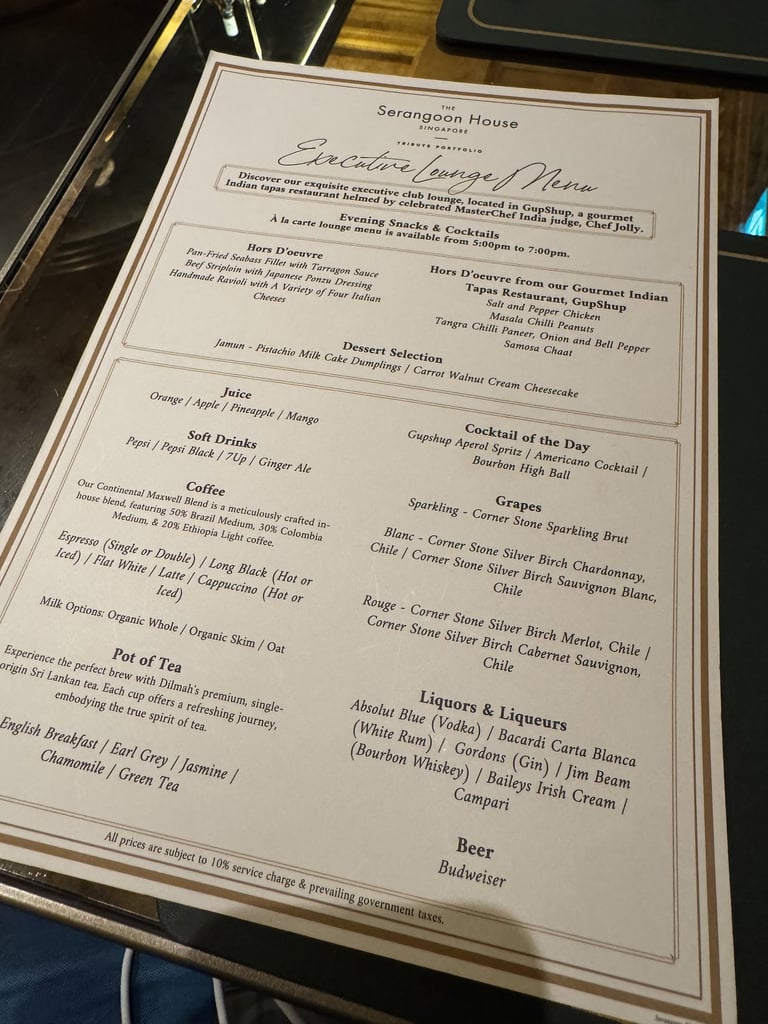 THE
Serangoon House
SINGAPORE
TRIBUTE PORTFOLIO
Executive Lounge Menu
Discover our exquisite executive club lounge, located in GupShup, a gourmet
Indian tapas restaurant helmed by celebrated MasterChef India judge, Chef Jolly.
Evening Snacks & Cocktails
À la carte lounge menu is available from 5:00pm to 7:00pm.
Hors D'oeuvre
Pan-Fried Seabass Fillet with Tarragon Sauce
Beef Striploin with Japanese Ponzu Dressing
Handmade Ravioli with A Variety of Four Italian
Cheeses
Hors D'oeuvre from our Gourmet Indian
Tapas Restaurant, GupShup
Salt and Pepper Chicken
Masala Chilli Peanuts
Tangra Chilli Paneer, Onion and Bell Pepper
Samosa Chaat
Dessert Selection
Jamun - Pistachio Milk Cake Dumplings / Carrot Walnut Cream Cheesecake
Juice
Orange / Apple / Pineapple / Mango
Soft Drinks
Pepsi / Pepsi Black / 7Up / Ginger Ale
Coffee
Our Continental Maxwell Blend is a meticulously crafted in-
house blend, featuring 50% Brazil Medium, 30% Colombia
Medium, & 20% Ethiopia Light coffee.
Espresso (Single or Double) / Long Black (Hot or
Iced) / Flat White / Latte / Cappuccino (Hot or
Iced)
Milk Options: Organic Whole / Organic Skim / Oat
Pot of Tea
Experience the perfect brew with Dilmah's premium, single-
origin Sri Lankan tea. Each cup offers a refreshing journey,
embodying the true spirit of tea.
English Breakfast / Earl Grey / Jasmine /
Chamomile / Green Tea
Cocktail of the Day
Gupshup Aperol Spritz / Americano Cocktail /
Bourbon High Ball
Grapes
Sparkling - Corner Stone Sparkling Brut
Blanc - Corner Stone Silver Birch Chardonnay,
Chile / Corner Stone Silver Birch Sauvignon Blanc,
Chile
Rouge - Corner Stone Silver Birch Merlot, Chile /
Corner Stone Silver Birch Cabernet Sauvignon,
Chile
Liquors & Liqueurs
Absolut Blue (Vodka) / Bacardi Carta Blanca
(White Rum) / Gordons (Gin) / Jim Beam
(Bourbon Whiskey) / Baileys Irish Cream /
Campari
Beer
Budweiser
All prices are subject to 10% service charge & prevailing government taxes.